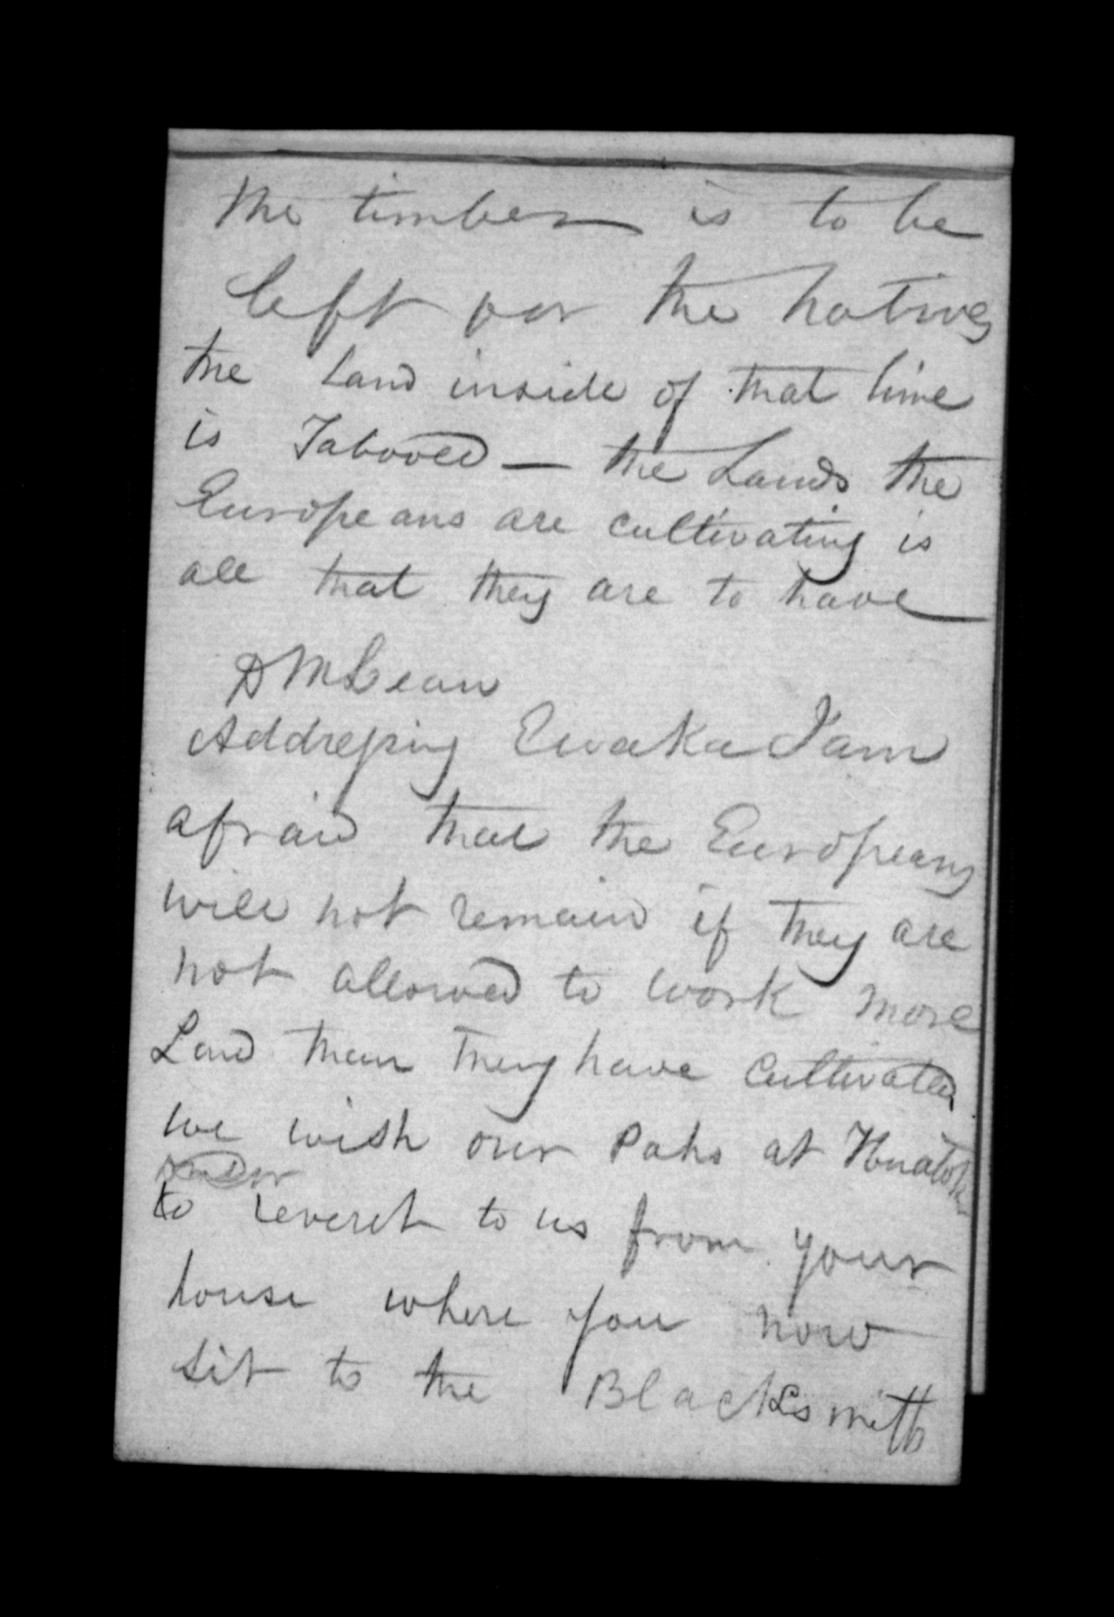 the timber is to be
left for the natives
the Land inside of that line
is Tabooed — the Lands the
Europeans are cultivating is
all that they are to have
D McLean
Addressing Ewaka I am
afraid that the Europeans
will not remain if they are
not allowed to work more
Land than they have cultivated
we wish our Pahs at
to reveret to us from your
house where you now
sit to the Blacksmith